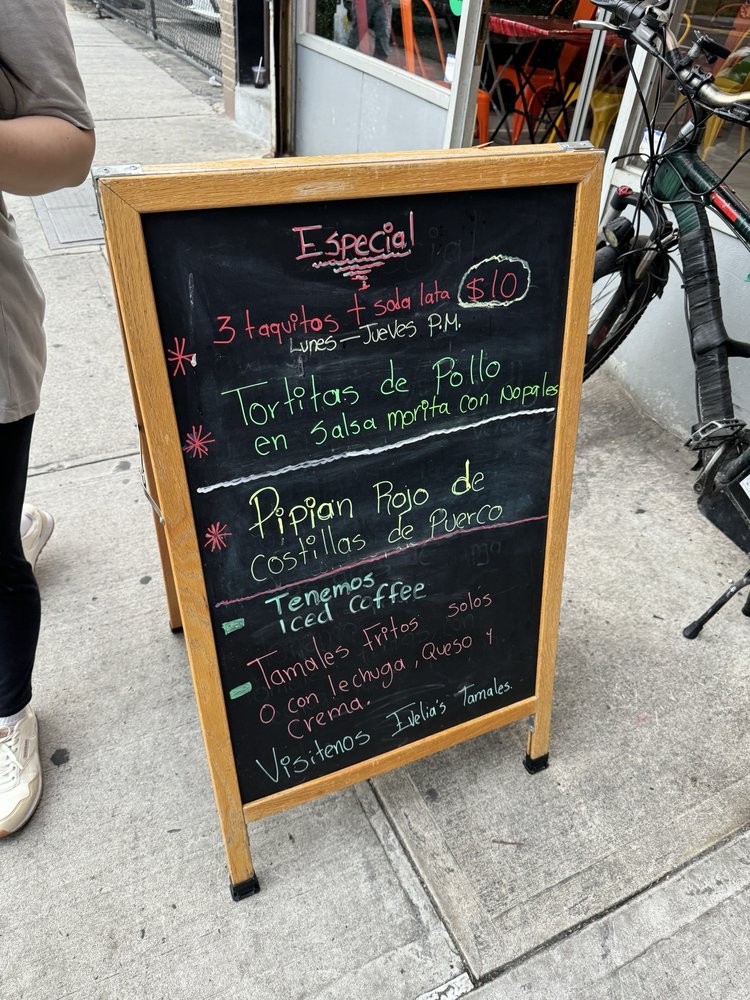 Especial
3 taquitos + soda lata $10
Lunes - Jueves P.M.
Tortitas de Pollo
en salsa morita con Nopales
Pipian Rojo de
costillas de Puerco
Tenemos
iced coffee
Tamales Fritos solos
O con lechuga, Queso y
Crema.
Visitenos Evelia's Tamales.